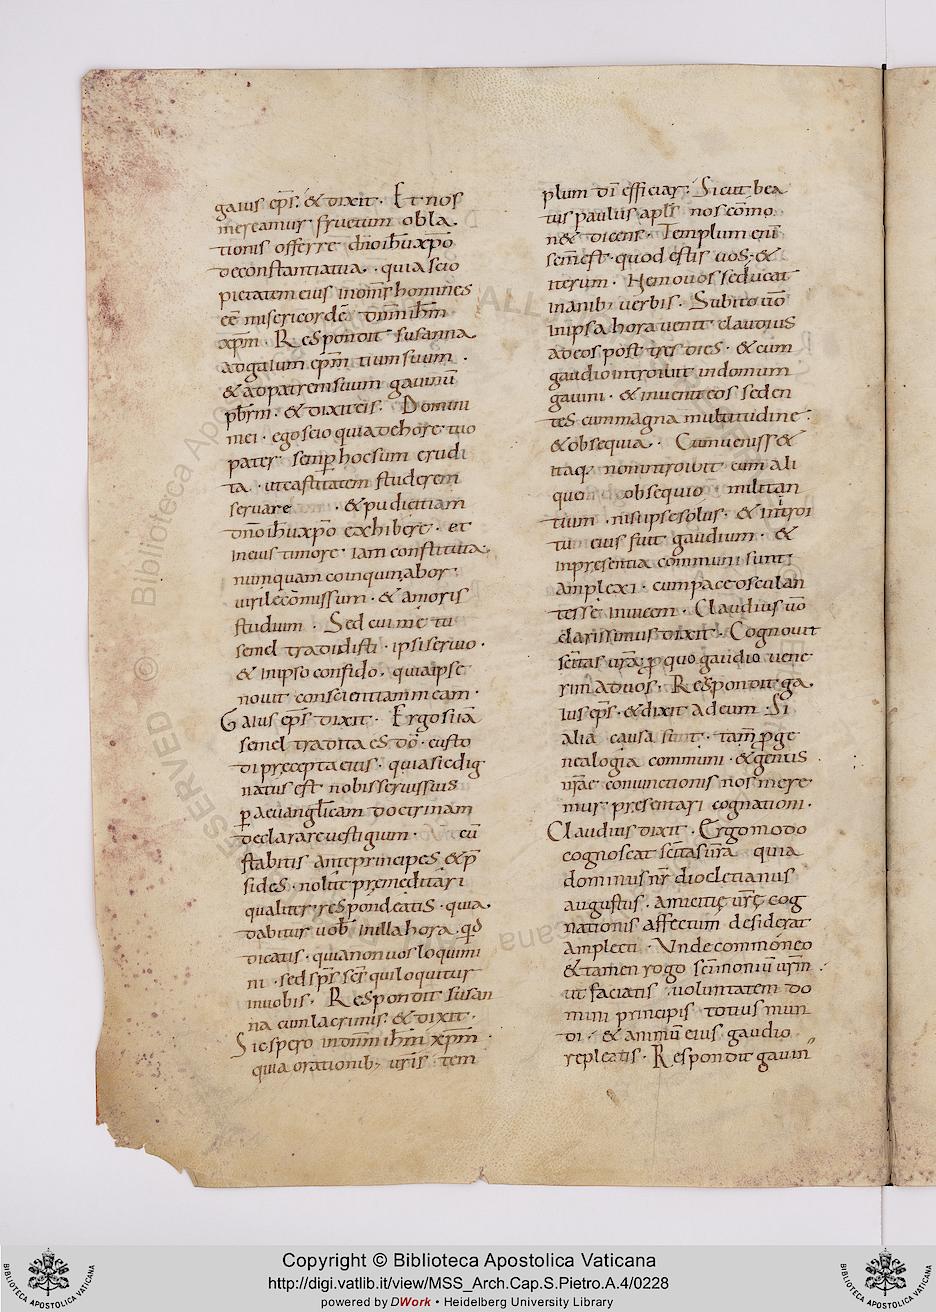 gaius ep̄s. & dixit. Et nos
mereamur fructum obla
tionis offerre dn̄oih̄uxp̄o
deconstantiatua. quiascio
pietatem eius inom̄s homines
eē misericordē. dn̄m ih̄m
xp̄m. Respondit susanna
adgaium ep̄m tiumsuum.
& adpatremsuum gauinū
pb̄rm. & dixiteis. Domini
mei. egoscio quiadehoretuo
pater semp̄ hocsum erudi
ta. utcastitatem studerem
seruare & pudicitiam
dn̄oih̄uxp̄o exhibere. et
ineius timore iam constituta.
nunquam coinquinabor
uirilecōmissum. & amoris
studium. Sed cui me tu
semel tradidisti. ipsiseruo.
& inipso confido. quiaipse
nouit conscientiam meam.
Gaius ep̄s dixit. Ergosiiā
semel tradita es dō. custo
di precepta eius. quiasicdig
natus est nobisseruissuis
p̄ aeuangl̄icam doctrinam
declarareuestigium. cū
stabitis anteprincipes & p̄
sides. nolite premeditari
qualiter respondeatis. quia.
dabitur uob̄ inillahora. qd̄
dicatis. quianonuosloquimi
ni. sedsp̄s sc̄s quiloquitur
inuobis. Respondit susan
na cumlacrimis. & dixit.
Sicspero indn̄m ih̄m xp̄m
quia orationib; ur̄is tem
plum dī efficiar. Sicut bea
tus paulus apl̄s nos cōmo.
n& dicens. Templum enī
sc̄m est. quod estis uos. &
iterum. Nemo uos seducat
inanib; uerbis. Subito uō
inipsa hora uenit claudius
adeos post tres dies. & cum
gaudiointroiuit indomum
gauini. & inuenit eos seden
tes cummagna multitudine.
& obsequia. Cumueniss&
itaq; nonintroiuit cum ali
quo obsequio militan
tium. nisiipsesolus. & introi
tu eius fuit gaudium. &
inpresentia communi sunt
amplexi. cumpaceosculan
tesse inuicem. Claudius uō
clarissimus dixit. Cognouit
sc̄itas ur̄a. p̄ quo gaudio uene
rim aduos. Respondit ga.
ius ep̄s. & dixit ad eum. Si
alia causa sunt. tam̄ p̄ ge
nealogia communi. & gentis
nr̄ae coniunctionis nos mere
mur presentari cognationi.
Claudius dixit. Ergo modo
cognoscat sc̄itasur̄a quia
dominus nr̄ diocletianus
augustus. amicitię ur̄ę cog
nationis affectum desiderat
amplecti. Unde commoneo
& tamen rogo sc̄imoniū ur̄m
ut faciatis uoluntatem do
mini principis totius mun
di. & animū eius gaudio
repleatis. Respondit gauin
Copyright © Biblioteca Apostolica Vaticana
http://digi.vatlib.it/view/MSS_Arch.Cap.S.Pietro.A.4/0228
powered by DWork • Heidelberg University Library